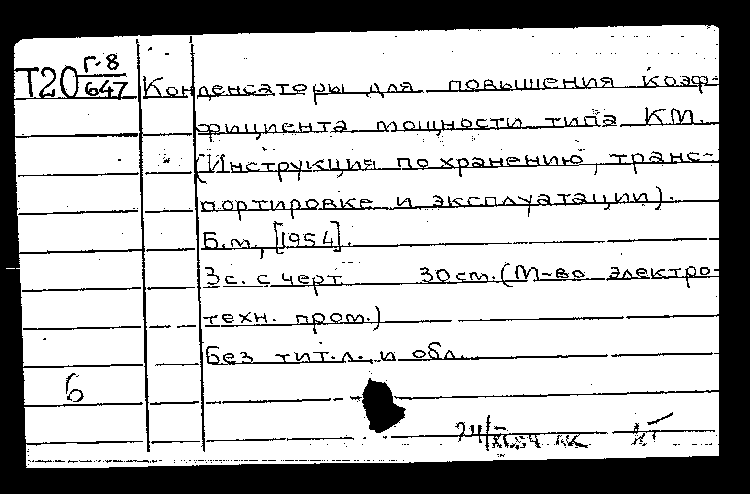 Г-8
Т20 647 Конденсаторы для повышения коэф-
фициента мощности типа КМ.
(Инструкция по хранению, транс-
портировке и эксплуатации).
Б.м., [1954].
3с. с черт 30 см. (М-во электро-
техн. пром.)
Без тит. л. и обл.
6
24/XI.54